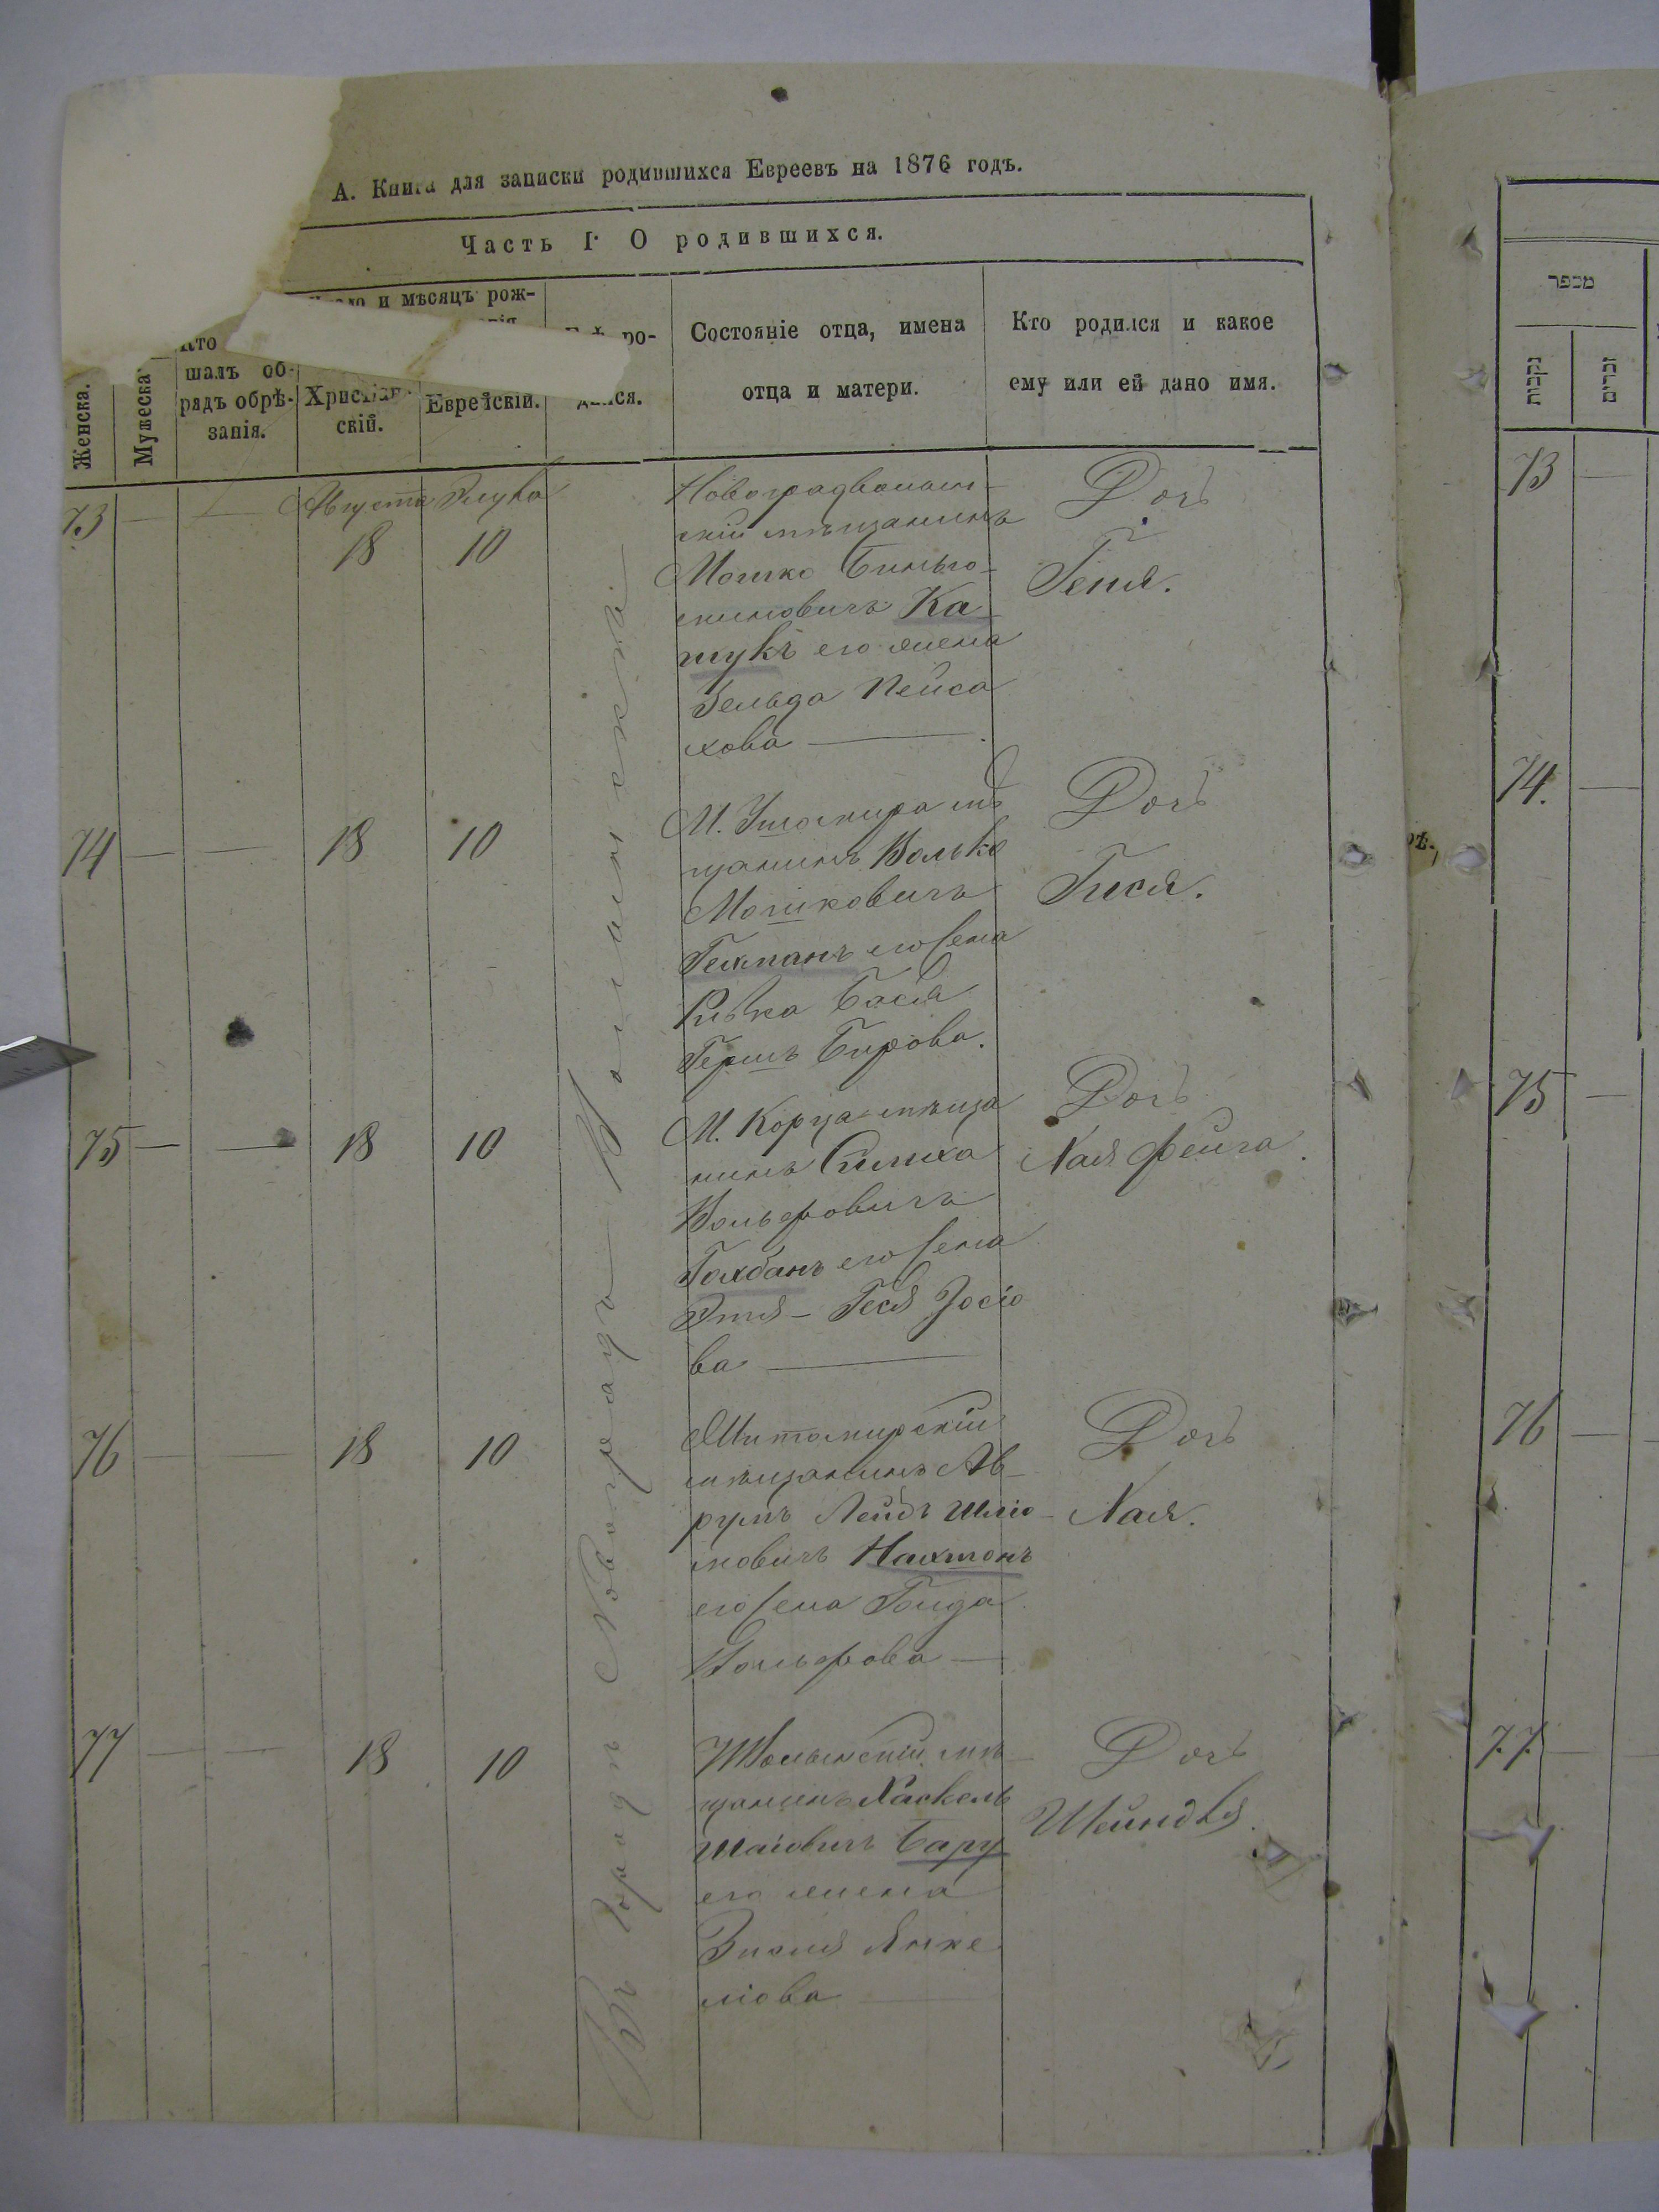 А. Книга для записки родившихся Евреевъ на 1876 годъ.
Часть I. О родившихся.
Женска.
Мужеска
Кто
шалъ об-
рядъ обрѣ-
занія.
и мѣсяцъ рож-
Христіан-
скій.
Еврейскій.
ро-
Состояніе отца, имена
отца и матери.
Кто родился и какое
ему или ей дано имя.
Въ городѣ Новоградъ Волынскѣ
73 — — Августа 18 Элула 10
Новоградволын-
скій мѣщанинъ
Мошко Биньо-
миновичъ Ка-
шукъ его жена
Зельда Пейса
хова —
Дочь
Геня.
74 — — 18 10
М. Ушомира мѣ
щанинъ Волько
Мошковичъ
Гехманъ его жена
Ривка Бася
Гершъ Бирова.
Дочь
Гися.
75 — — 18 10
М. Корца мѣща
нинъ Симха
Вольфовичъ
его жена
Этя - Геся Іосіо
ва —
Дочь
Хая Фейга.
76 — — 18 10
Житомирскій
мѣщанинъ Ав-
румъ Лейбъ Шліо-
мовичъ Нахтонъ
его жена Голда
Вольфова —
Дочь
Хая.
77 — — 18 10
мѣ-
щанинъ Хаскель
Шаіовичъ Бару
его жена
Янке
ліова —
Дочь
Шейндля.
מכפר
נקבות
זכרים
73 —
74. —
75 —
76 —
77. —